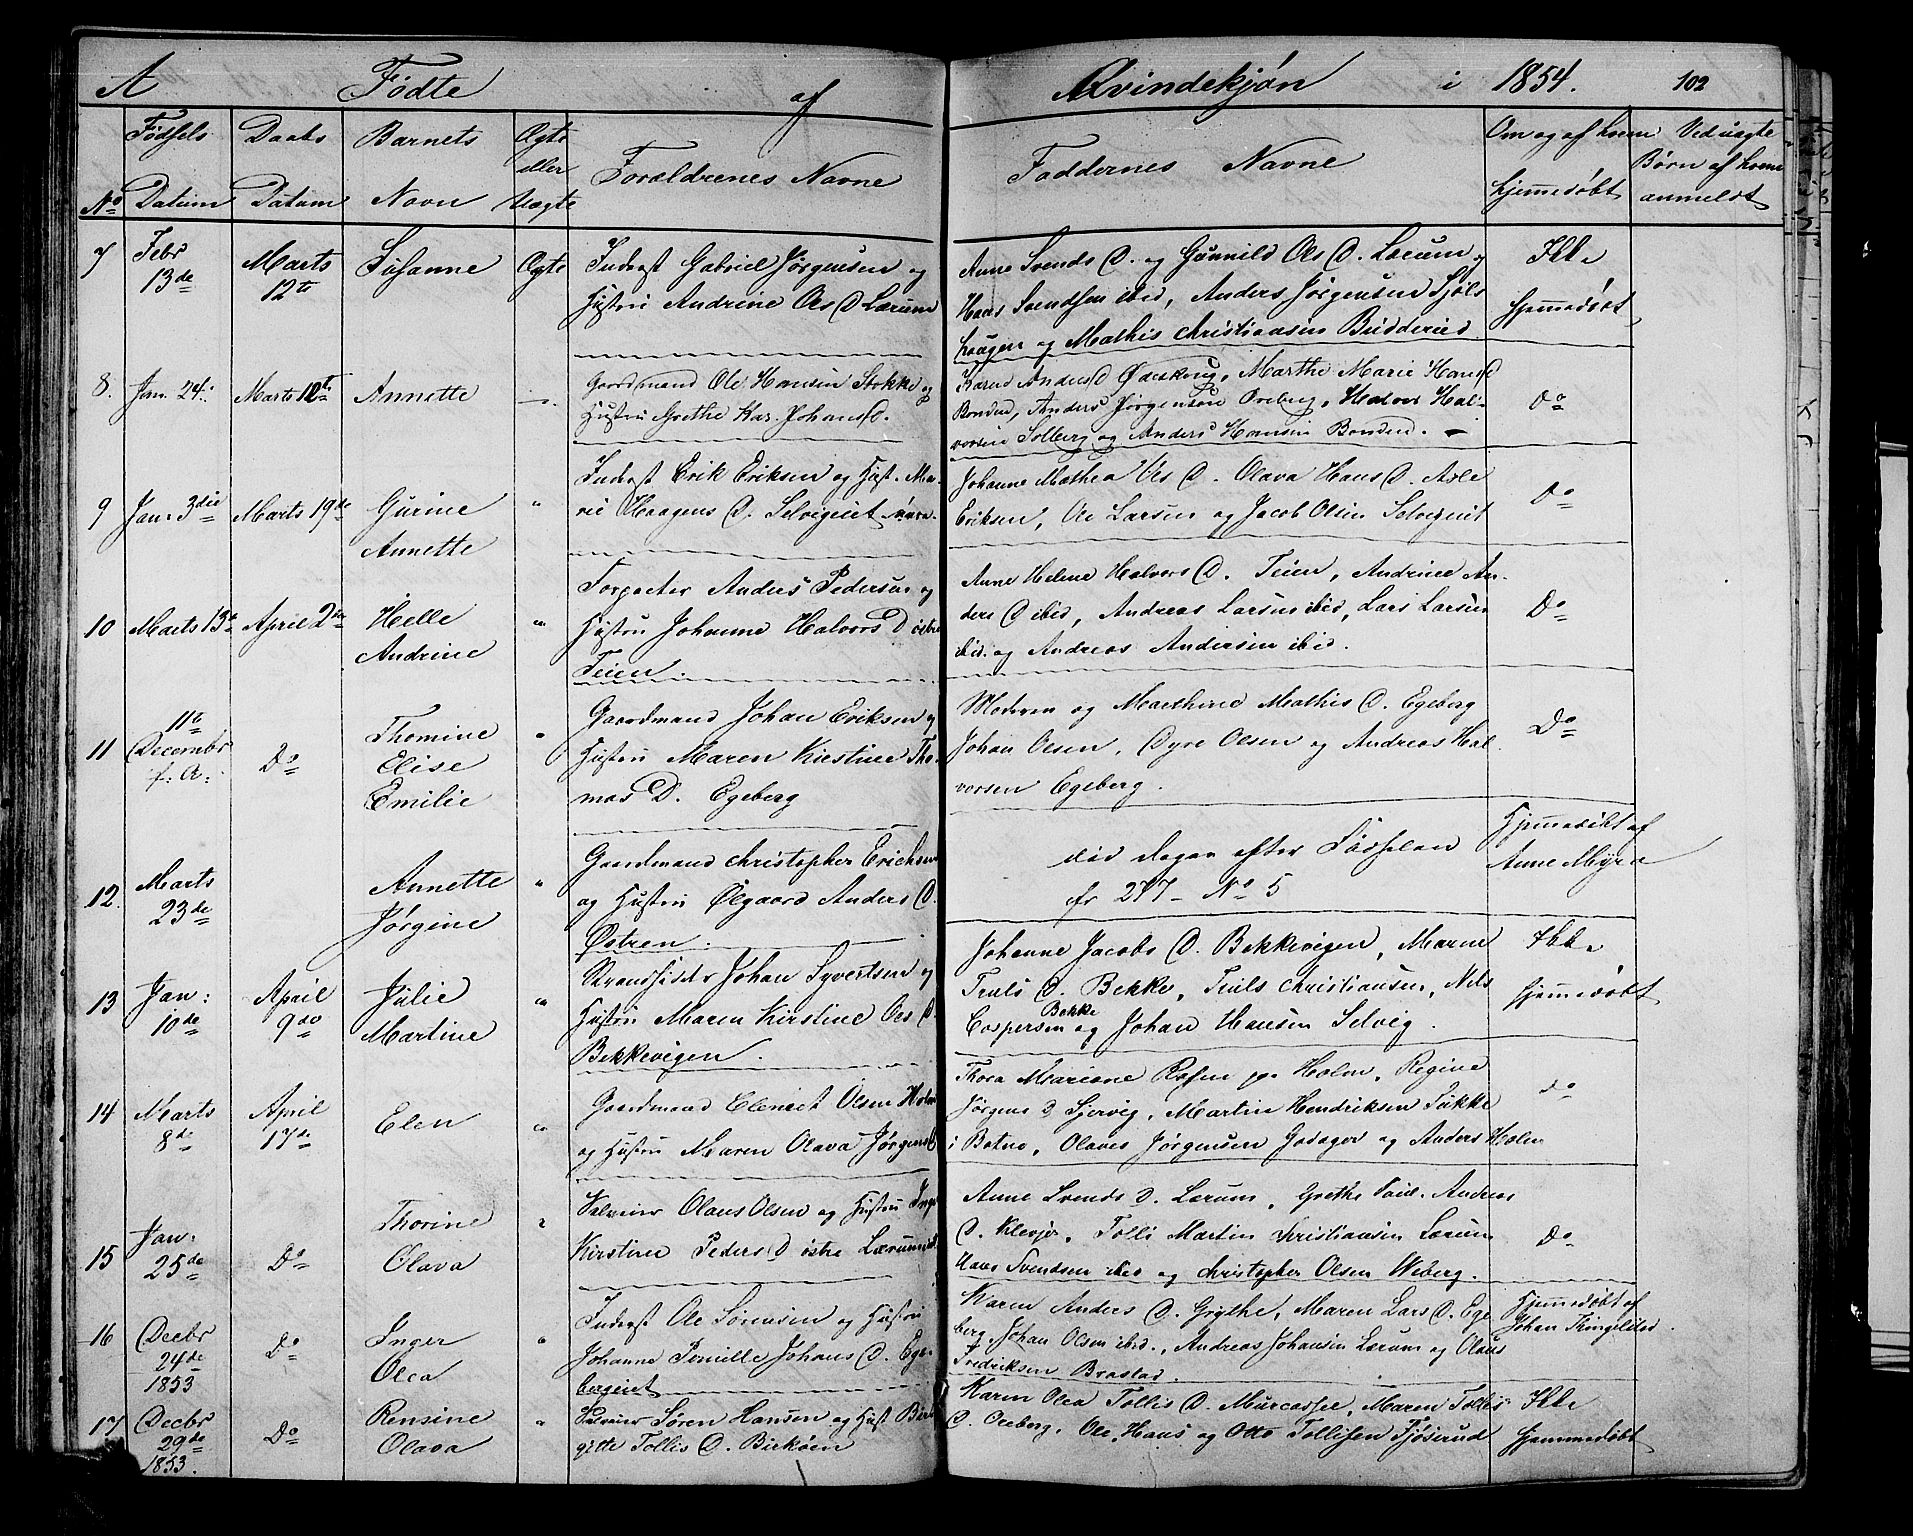 A Fødte af Qvindekjøn i 1854. 102
No Fødsels Datum Daabs Datum Barnets Navn Ægte eller Uægte Forældrenes Navne Faddernes Navne Om og af hvem hjemmedøbt Ved uægte Børn af hvem anmeldt
7 Febr 13de Marts 12te Susanne Ægte Inderst Gabriel Jørgensen og
Hustru Andrine Ols D. Lærum
Anne Svends D. og Gunnild Ols D. Lærum,
Hans Svendsen ibid, Anders Jørgensen Sjøls
haugen og Mathis Christiansen Budderud
Ikke
hjemmedøbt
8. Jan. 24. Marts 12te Annette — Gaardmand Ole Hansen Stokke og
Hustru Grethe Kar. Johans D.
Karen Anders D Ødeskoug, Marthe Marie Hans D
Bonden, Anders Jørgensen Oreberg, Halvor Hal-
vorsen Solberg og Anders Hansen Bonden. —
Do
9 Jan. 3die Marts 19de Gurine
Annette
" Inderst Erik Eriksen og Hust. Ma-
rie Haagens D. Selvigeiet
Johanne Mathea Ols D. Olava Hans D. Axle
Eriksen, Ole Larsen og Jacob Olsen Selvigeiet
Do
10 Marts 13de April 2den Helle
Andrine
" Forpagter Anders Pedersen og
Hustru Johanne Halvors D østre
Teien.
Anne Helene Halvors D. Teien, Andrine An-
ders D ibid, Andreas Larsen ibid, Lars Larsen
ibid. og Andreas Andersen ibid.
Do
11 11te
Decembr
f. A: Do Thomine
Elise
Emilie
" Gaardmand Johan Eriksen og
Hustru Maren Kirstine Tho-
mas D. Egeberg
Moderen og Marthine Mathis D. Egeberg
Johan Olsen, Dyre Olsen og Andreas Hal-
vorsen Egeberg.
Do
12. Marts
23de Annette
Jørgine
" Gaardmand Christopher Erichsen
og Hustru Ølgaard Anders D.
Østren.
død dagen efter Fødselen
fr 277 — No 5
Hjemmedøbt af
Anne Myra
13 Jan:
10de April
9de Julie
Martine
" Strandsidder Johan Syvertsen og
Hustru Maren Kirstine Ols D.
Bekkevigen.
Johanne Jacobs D. Bekkevigen, Maren
Truls D. Bekke, Truls Christiansen, Nils
Caspersen Bekke og Johan Hansen Selvig.
Ikke
hjemmedøbt
14 Marts
8de April
17de Elen
" Gaardmand Elenert Olsen Holm
og Hustru Maren Olava Jørgens D
Thora Mariane Rafen pr. Holm, Regine
Jørgens D Sjervig, Martin Hendriksen Sukke
i Botne, Olaves Jørgensen Gadager og Anders Holm
do
15 Jan:
25de Do Thorine
Olava
" Selveier Olaus Olsen og Hustru Inger
Kirstine Peders D østre Lærum
Anne Svends D. Lærum, Grethe Paul. Andreas
D. Klevjer, Tolli Martin Christiansen Lærum
Hans Svendsen ibid og Christopher Olsen Weberg.
Do
16 Decbr
24de
1853 Do Inger
Olea
" Inderst Ole Sørensen og Hustru
Johanne Pernille Johans D. Ege-
bergeiet
Karen Anders D. Grythe, Maren Lars D. Ege
berg, Johan Olsen ibid., Andreas Johansen Lærum og Olaus
Fredriksen Brastad.
Hjemmedøbt af
Johan
17 Decbr
29de
1853. Do Rensine
Olava
" Selveier Søren Hansen og Hust Bir-
gitte Tollis D. Birkøen
Karen Olea Tollis D. Murcasse, Maren Tollis
D. Oreberg, Ole, Hans og Otto Tollisen Fjøserud
Ikke
hjemmedøbt